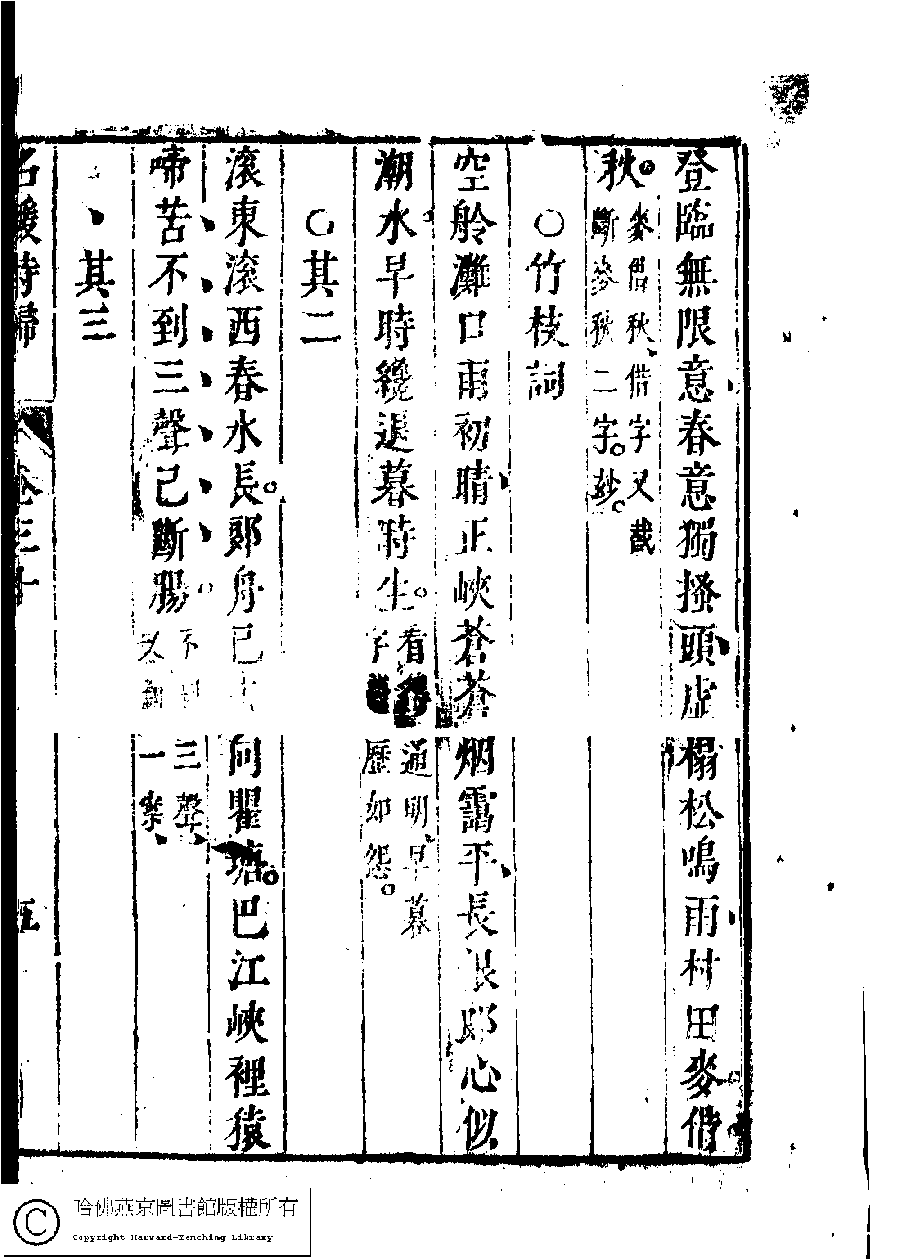 登臨無限意春意獨搔頭虛榻松鳴雨村田麥借
秋麥借秋借字又截
斷麥秋二字妙
○竹枝詞
空舲灘口雨初晴正峽蒼蒼烟靄平長恨郎心似
潮水早時纔退暮時生看通明早暮
字歷如怨
○其二
滾東滾西春水長郞舟已向瞿塘巴江峽裡猿
啼苦不到三聲已斷腸不三聲
又翻一案
其三
名媛詩歸
卷三十
五
哈佛燕京圖書館版權所有
Copyright Harvard-Yenching Library